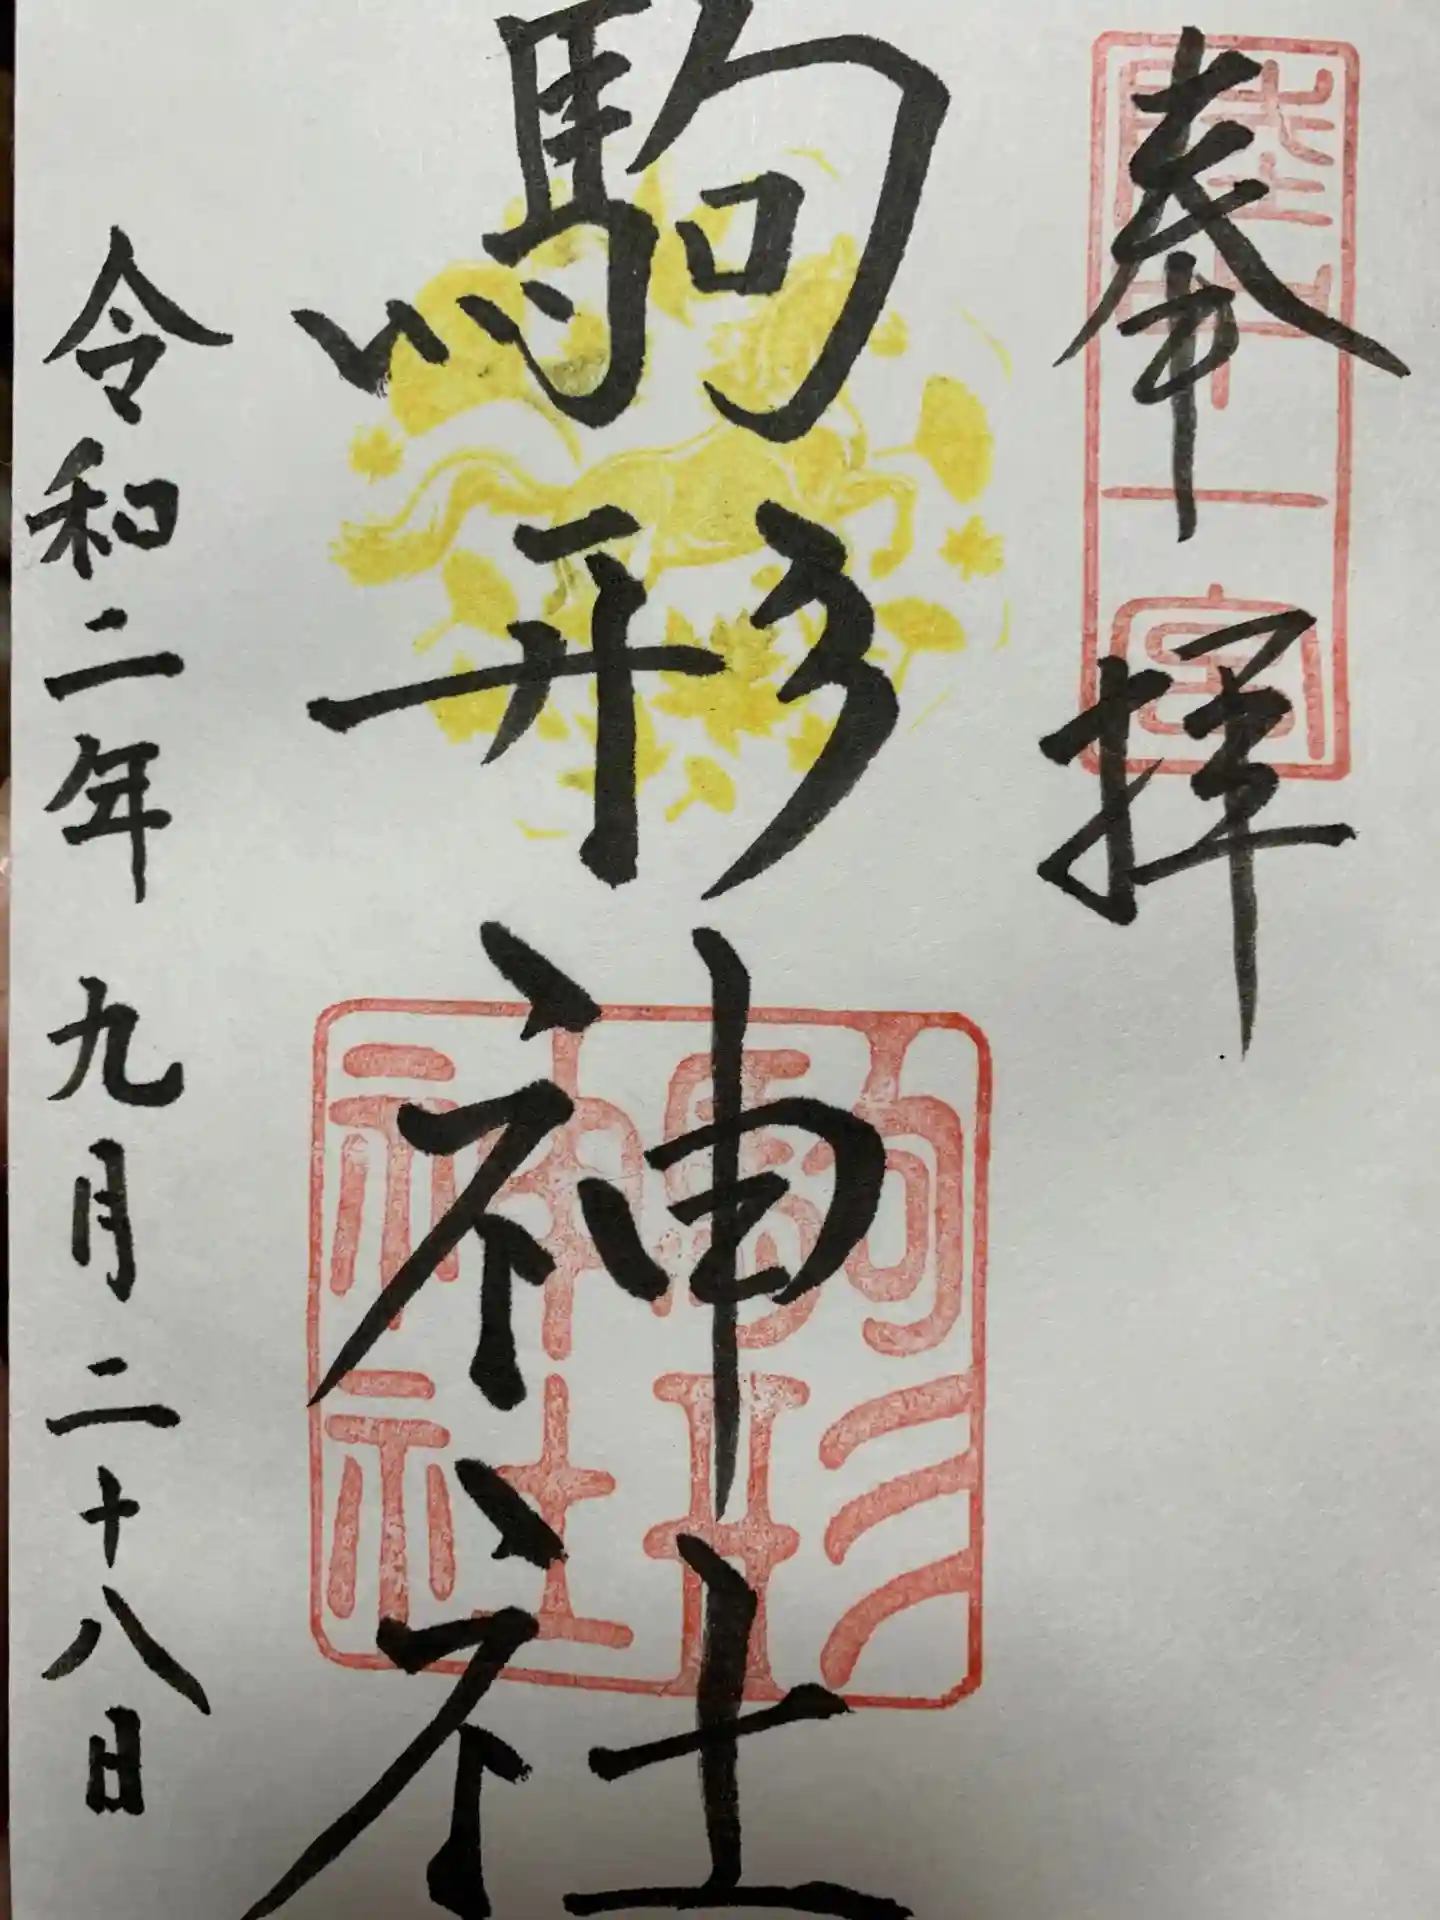 奉拝
陸中一宮
駒形神社
駒形神社
令和二年 九月二十八日